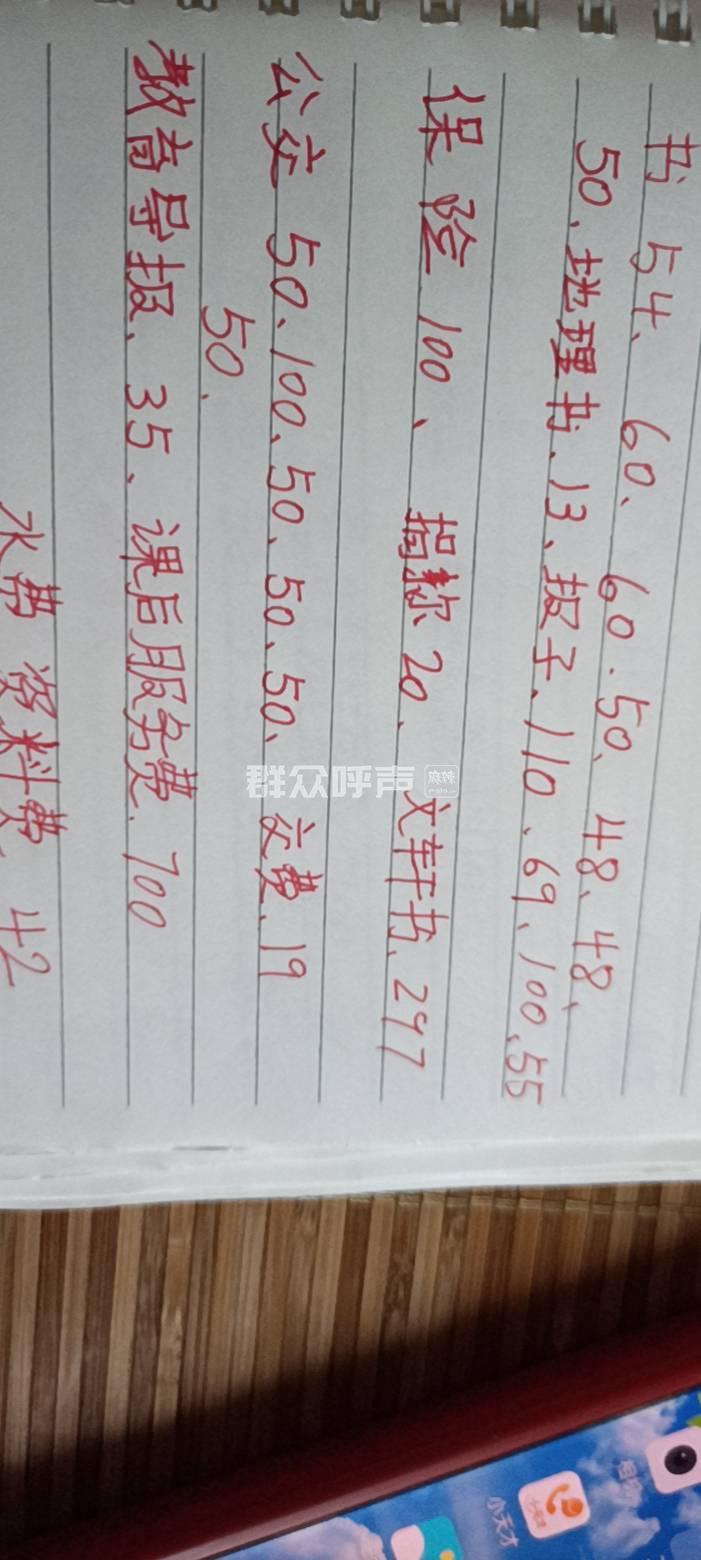 书 54、60、60.50、48、48、
50、地理书、13、报子、110、69、100、55
保险 100、捐款 20、文轩书、297
公交 50、100、50、50、50、交费、19
50.
教育导报、35、课后服务费、700
水费 资料费、42
群众呼声
小天才